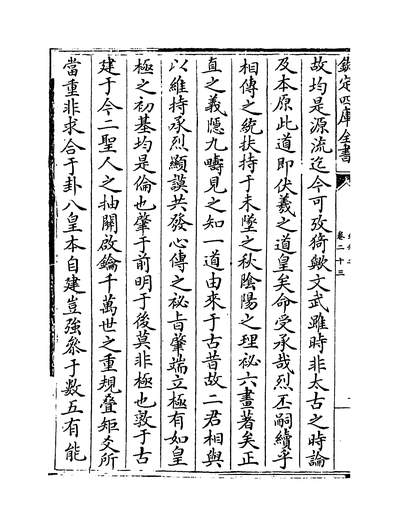 欽定四庫全書
卷二十三
故均是源流迄今可攷猗歟文武雖時非太古之時論
及本原此道即伏羲之道皇矣命受承哉烈丕嗣續乎
相傳之統扶持于未墜之秋陰陽之理秘六畫著矣正
直之義隱九疇見之知一道由來于古昔故二君相與
以維持承烈顯謨共發心傳之祕旨肇端立極有如皇
極之初基均是倫也肇于前明于後莫非極也敦于古
建于今二聖人之抽關啟鑰千萬世之重規疊矩爻所
當重非求合于卦八皇本自建豈強叅于數五有能